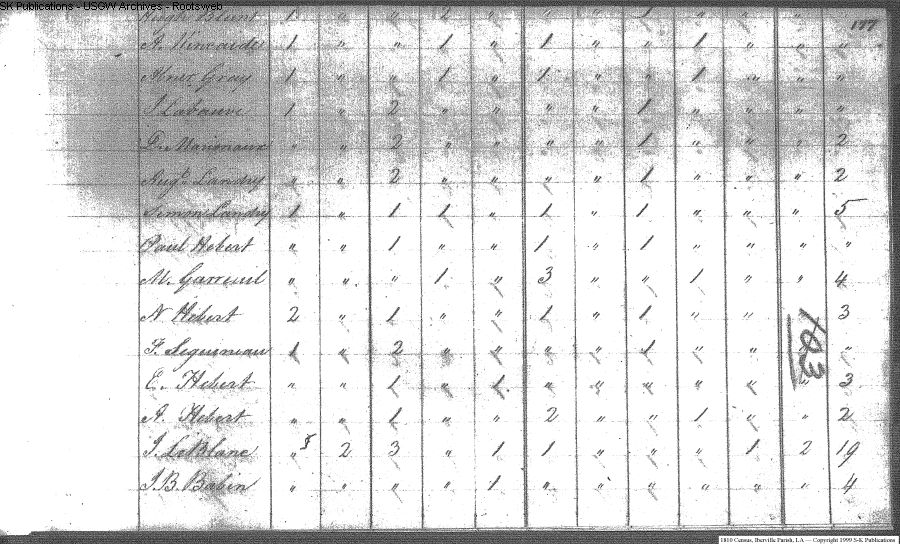 SK Publications - USGW Archives - Rootsweb
Hugh Blunt 1 " " 2 " " " 1 " " " "
177
A. Kincaide 1 " " 1 " 1 " " 1 " " "
Abner Gray 1 " " 1 " 1 " " 1 " " "
J Labauve 1 " 2 " " " " 1 " " " "
D. Marionaux " " 2 " " " " 1 " " " 2
Augt. Landry " " 2 " " " " 1 " " " 2
Simon Landry 1 " 1 1 " 1 " 1 " " " 5
Paul Hebert " " 1 " " 1 " 1 " " " "
M. " " " 1 " 3 " " 1 " " 4
N Hebert 2 " 1 " " 1 " 1 " " " 3
F. 1 " 2 " " " " 1 " " "
E. Hebert " " 1 " 1 " " " " " " 3
A. Hebert " " 1 " " 2 " " 1 " " 2
J. LeBlanc " 2 3 " 1 1 " " " 1 2 19
J B. Babin " " " " 1 " " " " " " 4
1810 Census, Iberville Parish, LA — Copyright 1999 S-K Publications